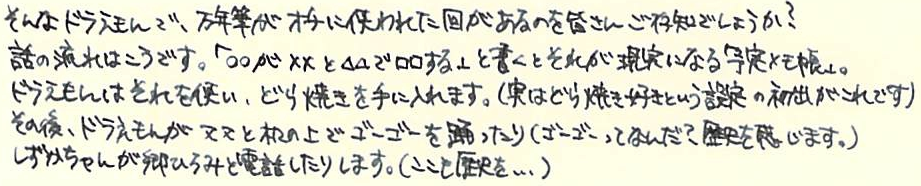 そんなドラえもんで、万年筆がオチに使われた回があるのを皆さんご存知でしょうか?
話の流れはこうです。「○○が××と△△で□□する」と書くとそれが現実になる「予定メモ帳」。
ドラえもんはそれを使い、どら焼きを手に入れます。(実はどら焼き好きという設定の初出がこれです)
その後、ドラえもんがママと机の上でゴーゴーを踊ったり(ゴーゴーってなんだ?歴史を感じます。)
しずかちゃんが郷ひろみと電話したりします。(ここも歴史を…)